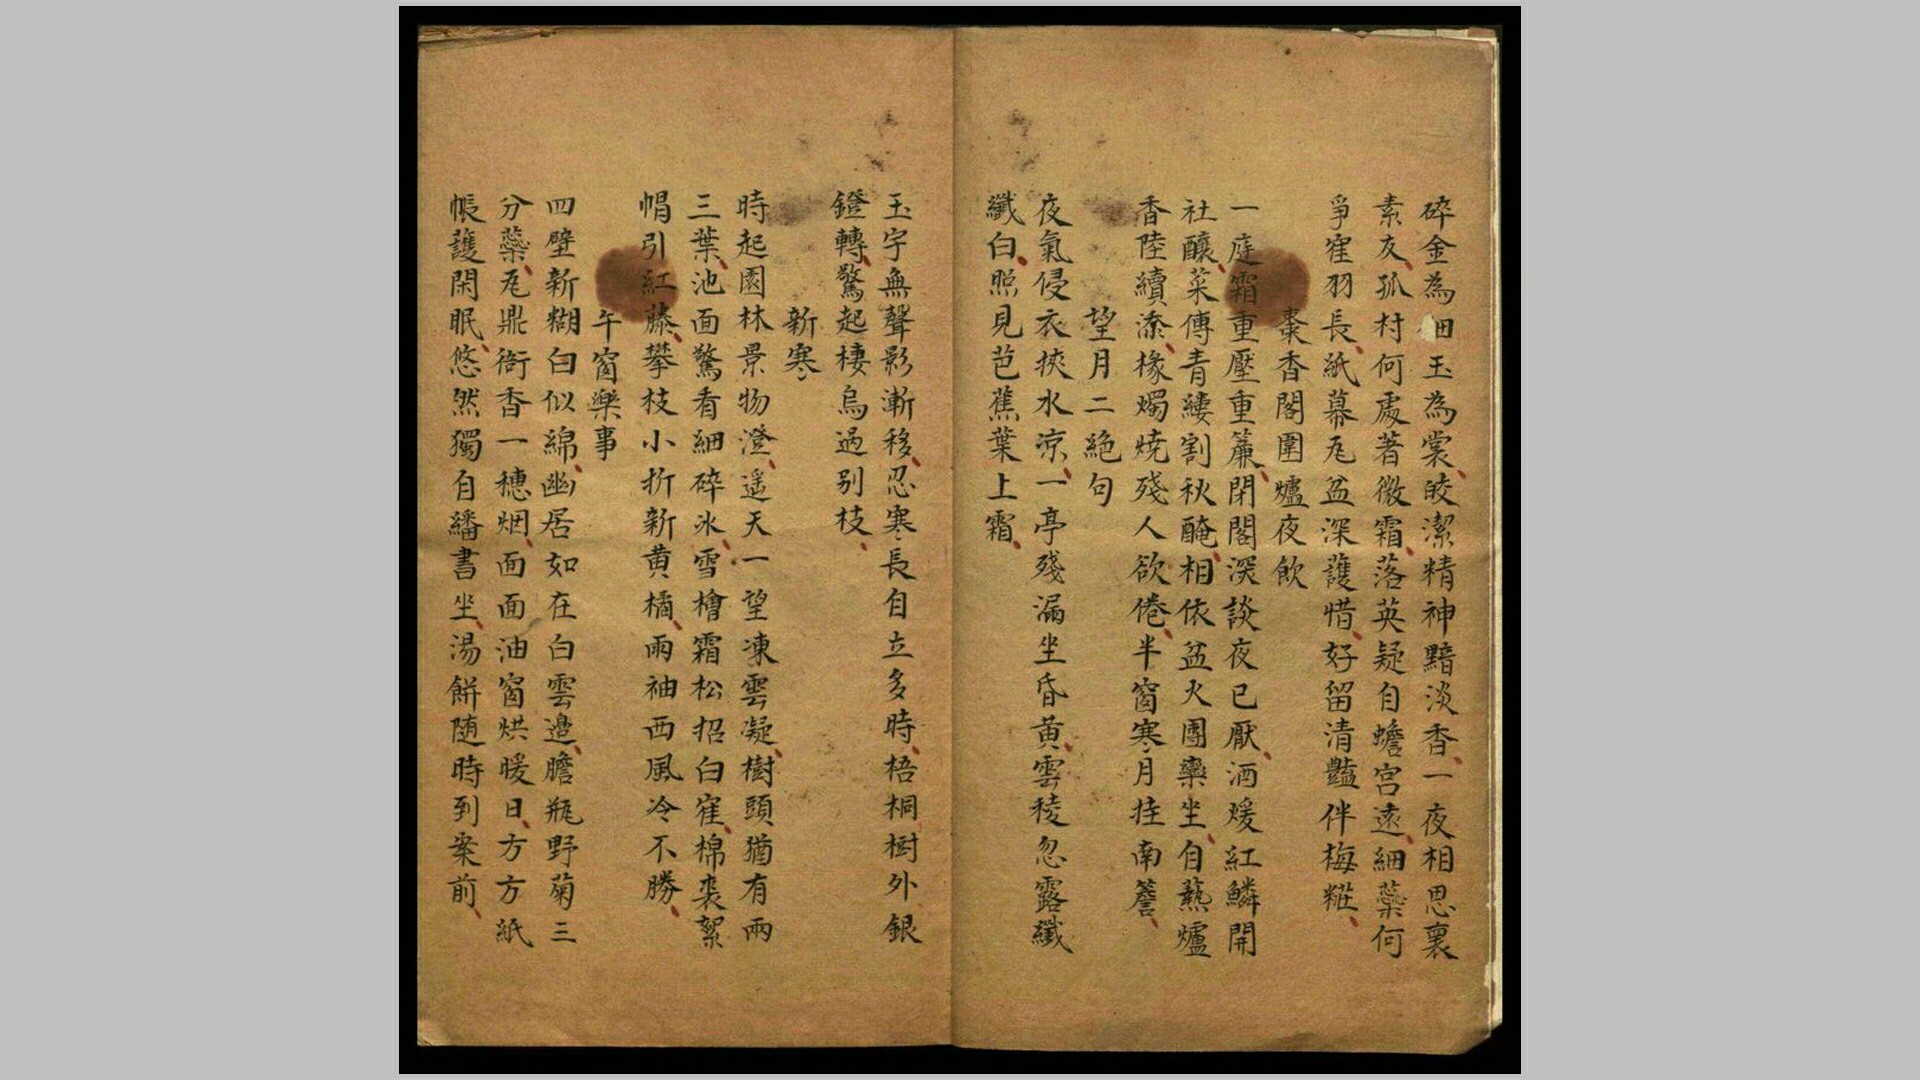 碎金為細玉為裳皎潔精神黯淡香一夜相思裏
素友孤村何處著微霜落英疑自蟾宮遠細蘂何
爭寉羽長紙幕瓦盆深護惜好留清豔伴梅糚
棗香閣圍爐夜飲
一庭霜重壓重簾閉閣深談夜已厭酒煖紅鱗開
社釀菜傳青縷割秋醃相依盆火團欒坐自爇爐
香陸續添椽燭燒殘人欲倦半窗寒月挂南簷
望月二絕句
夜氣侵衣挾水凉一亭殘漏坐昏黃雲稜忽露纖
纖白照見芭蕉葉上霜
玉宇無聲影漸移忍寒長自立多時梧桐樹外銀
鐙轉驚起棲烏過別枝
新寒
時起園林景物澄遥天一望凍雲凝樹頭猶有兩
三葉池面驚看細碎氷雪檜霜松招白寉棉裘絮
帽引紅藤攀枝小折新黃橘兩袖西風冷不勝
午窗樂事
四壁新糊白似綿幽居如在白雲邉膽瓶野菊三
分蘂瓦鼎衙香一穗烟面面油窗烘暖日方方紙
帳護閑眠悠然獨自繙書坐湯餅随時到案前